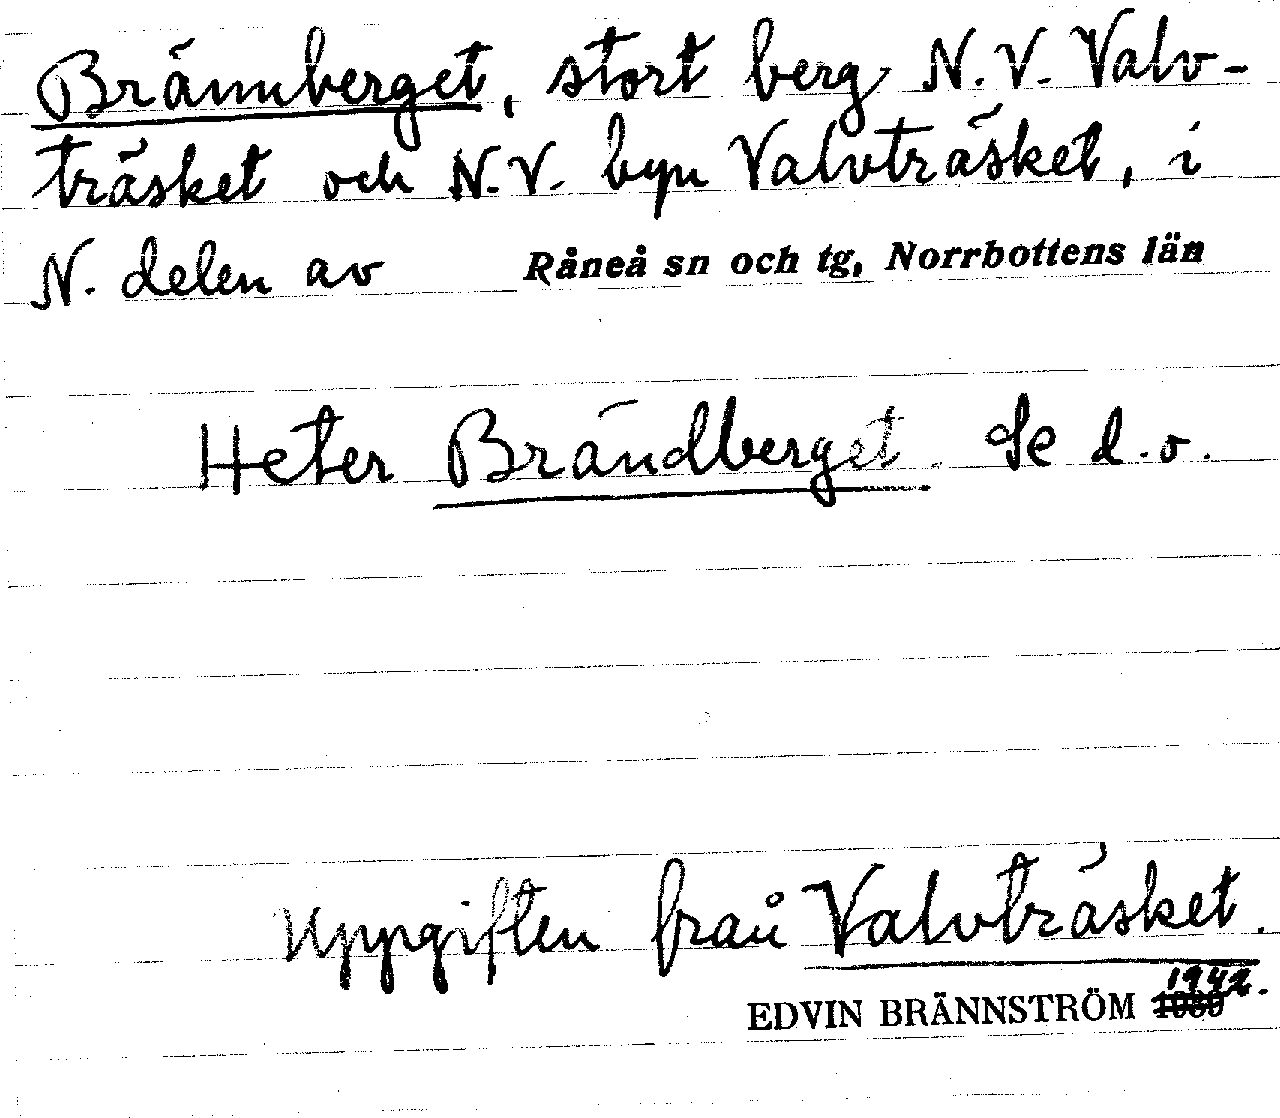 Brännberget, stort berg N.V. Valv-
träsket och N.V. byn Valvträsket, i
N. delen av Råneå sn och tg, Norrbottens län
Heter Brändberget. Se d.o.
Uppgiften från Valvträsket.
1942.
EDVIN BRÄNNSTRÖM